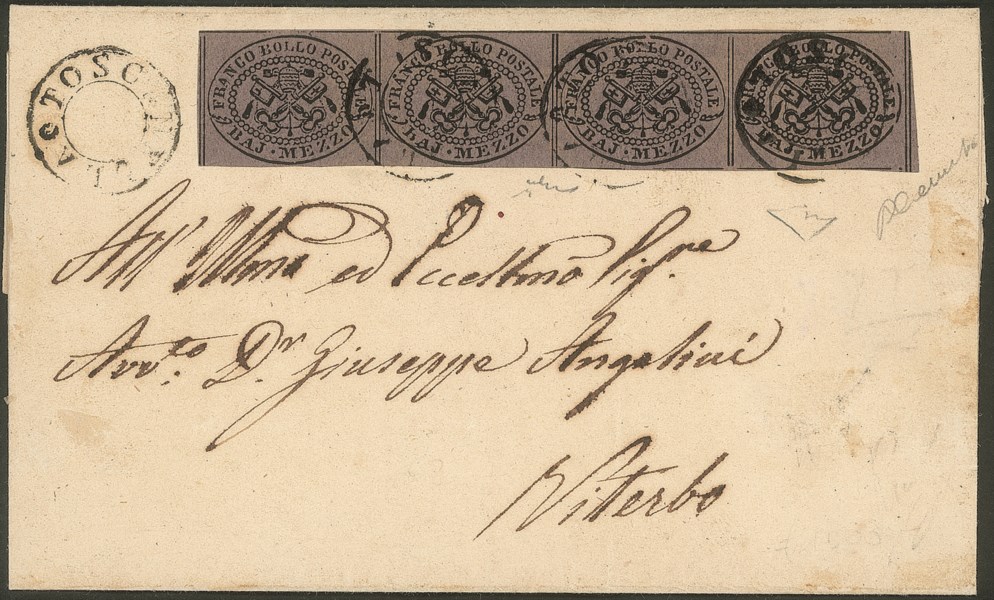 TOSCANELLA
FRANCO BOLLO POSTALE
BAJ. MEZZO
FRANCO BOLLO POSTALE
BAJ. MEZZO
FRANCO BOLLO POSTALE
BAJ. MEZZO
FRANCO BOLLO POSTALE
BAJ. MEZZO
All' Illmo ed Eccellmo Sigr.re
Avv.to Dr. Giuseppe Angelini
Viterbo